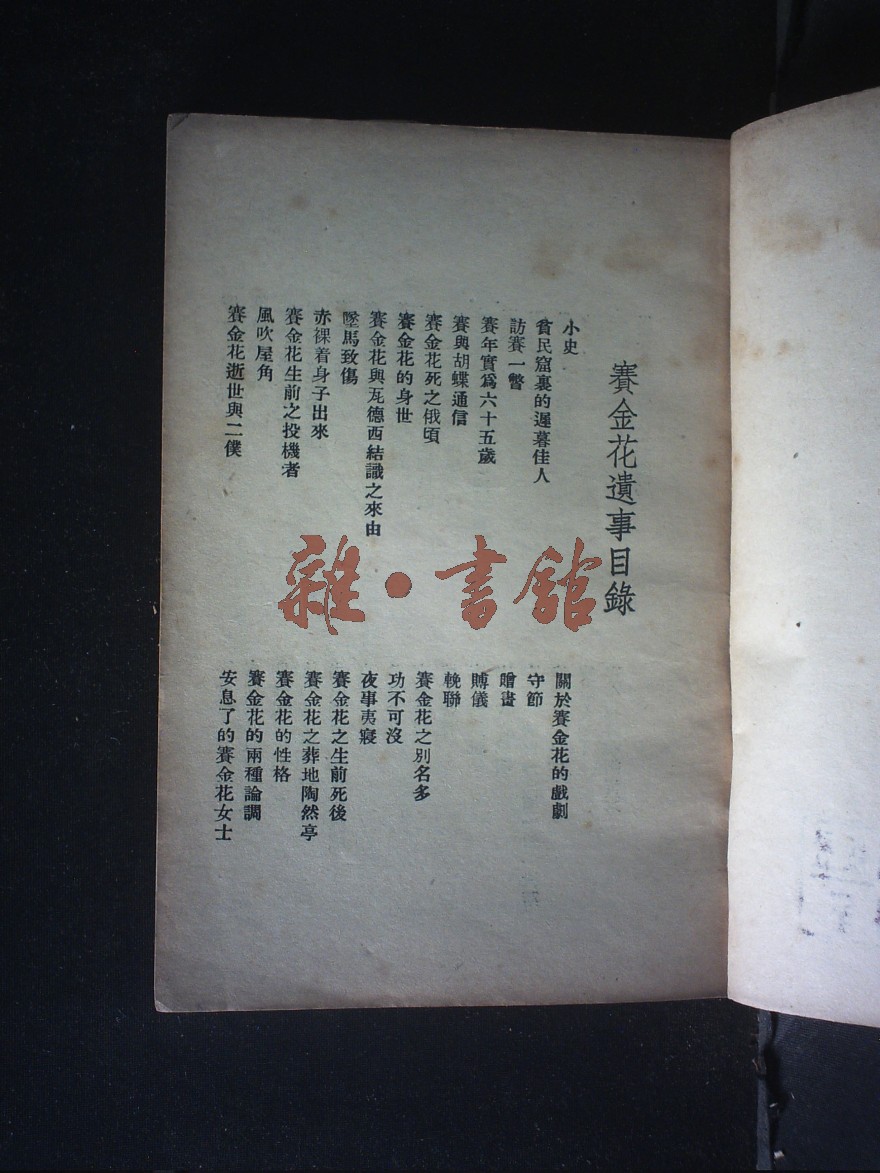 賽金花遺事目錄
小史
貧民窟裏的遲暮佳人
訪賽一瞥
賽年實爲六十五歲
賽與胡蝶通信
賽金花死之俄頃
賽金花的身世
賽金花與瓦德西結識之來由
墜馬致傷
赤裸着身子出來
賽金花生前之投機者
風吹屋角
賽金花逝世與二僕
關於賽金花的戲劇
守節
贈畫
賻儀
輓聯
賽金花之別名多
功不可沒
夜事夷寢
賽金花之生前死後
賽金花之葬地陶然亭
賽金花的性格
賽金花的兩種論調
安息了的賽金花女士
雜·書館